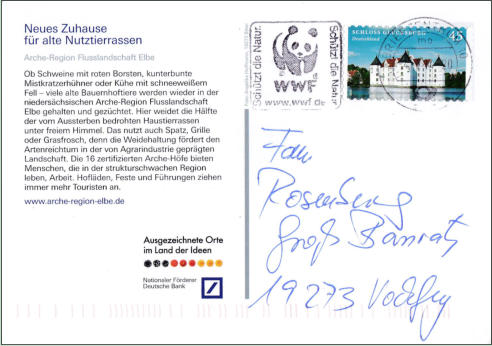 Neues Zuhause
für alte Nutztierrassen
Arche-Region Flusslandschaft Elbe
Ob Schweine mit roten Borsten, kunterbunte
Mistkratzerhühner oder Kühe mit schneeweißem
Fell – viele alte Bauernhoftiere werden wieder in der
niedersächsischen Arche-Region Flusslandschaft
Elbe gehalten und gezüchtet. Hier weidet die Hälfte
der vom Aussterben bedrohten Haustierrassen
unter freiem Himmel. Das nutzt auch Spatz, Grille
oder Grasfrosch, denn die Weidehaltung fördert den
Artenreichtum in der von Agrarindustrie geprägten
Landschaft. Die 16 zertifizierten Arche-Höfe bieten
Menschen, die in der strukturschwachen Region
leben, Arbeit. Hofläden, Feste und Führungen ziehen
immer mehr Touristen an.
www.arche-region-elbe.de
Ausgezeichnete Orte
im Land der Ideen
Nationaler Förderer
Deutsche Bank
Schützt die Natur.
WWF
www.wwf.de
Schützt die Natur.
SCHLOSS GLÜCKSBURG
Deutschland
45
BRIEFZENTRUM
Rosenberg
Groß Banratz
19273